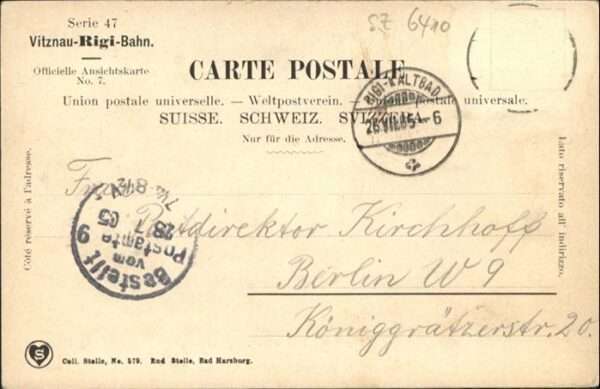 Serie 47
Vitznau-Rigi-Bahn.
Officielle Ansichtskarte
No. 7.
SZ 6410
CARTE POSTALE
Union postale universelle. — Weltpostverein. — Unione postale universale.
SUISSE. SCHWEIZ. SVIZZERA.
Nur für die Adresse.
RIGI-KALTBAD
26.VII.05-6
Côté réservé à l'adresse.
Lato riservato all' indirizzo.
Bestellt
vom
Postamte 9
28 7 05
Postdirektor Kirchhoff
Berlin W 9
Königgrätzerstr. 20.
S
Coll. Stelle, No. 579. Rud Stelle, Bad Harzburg.